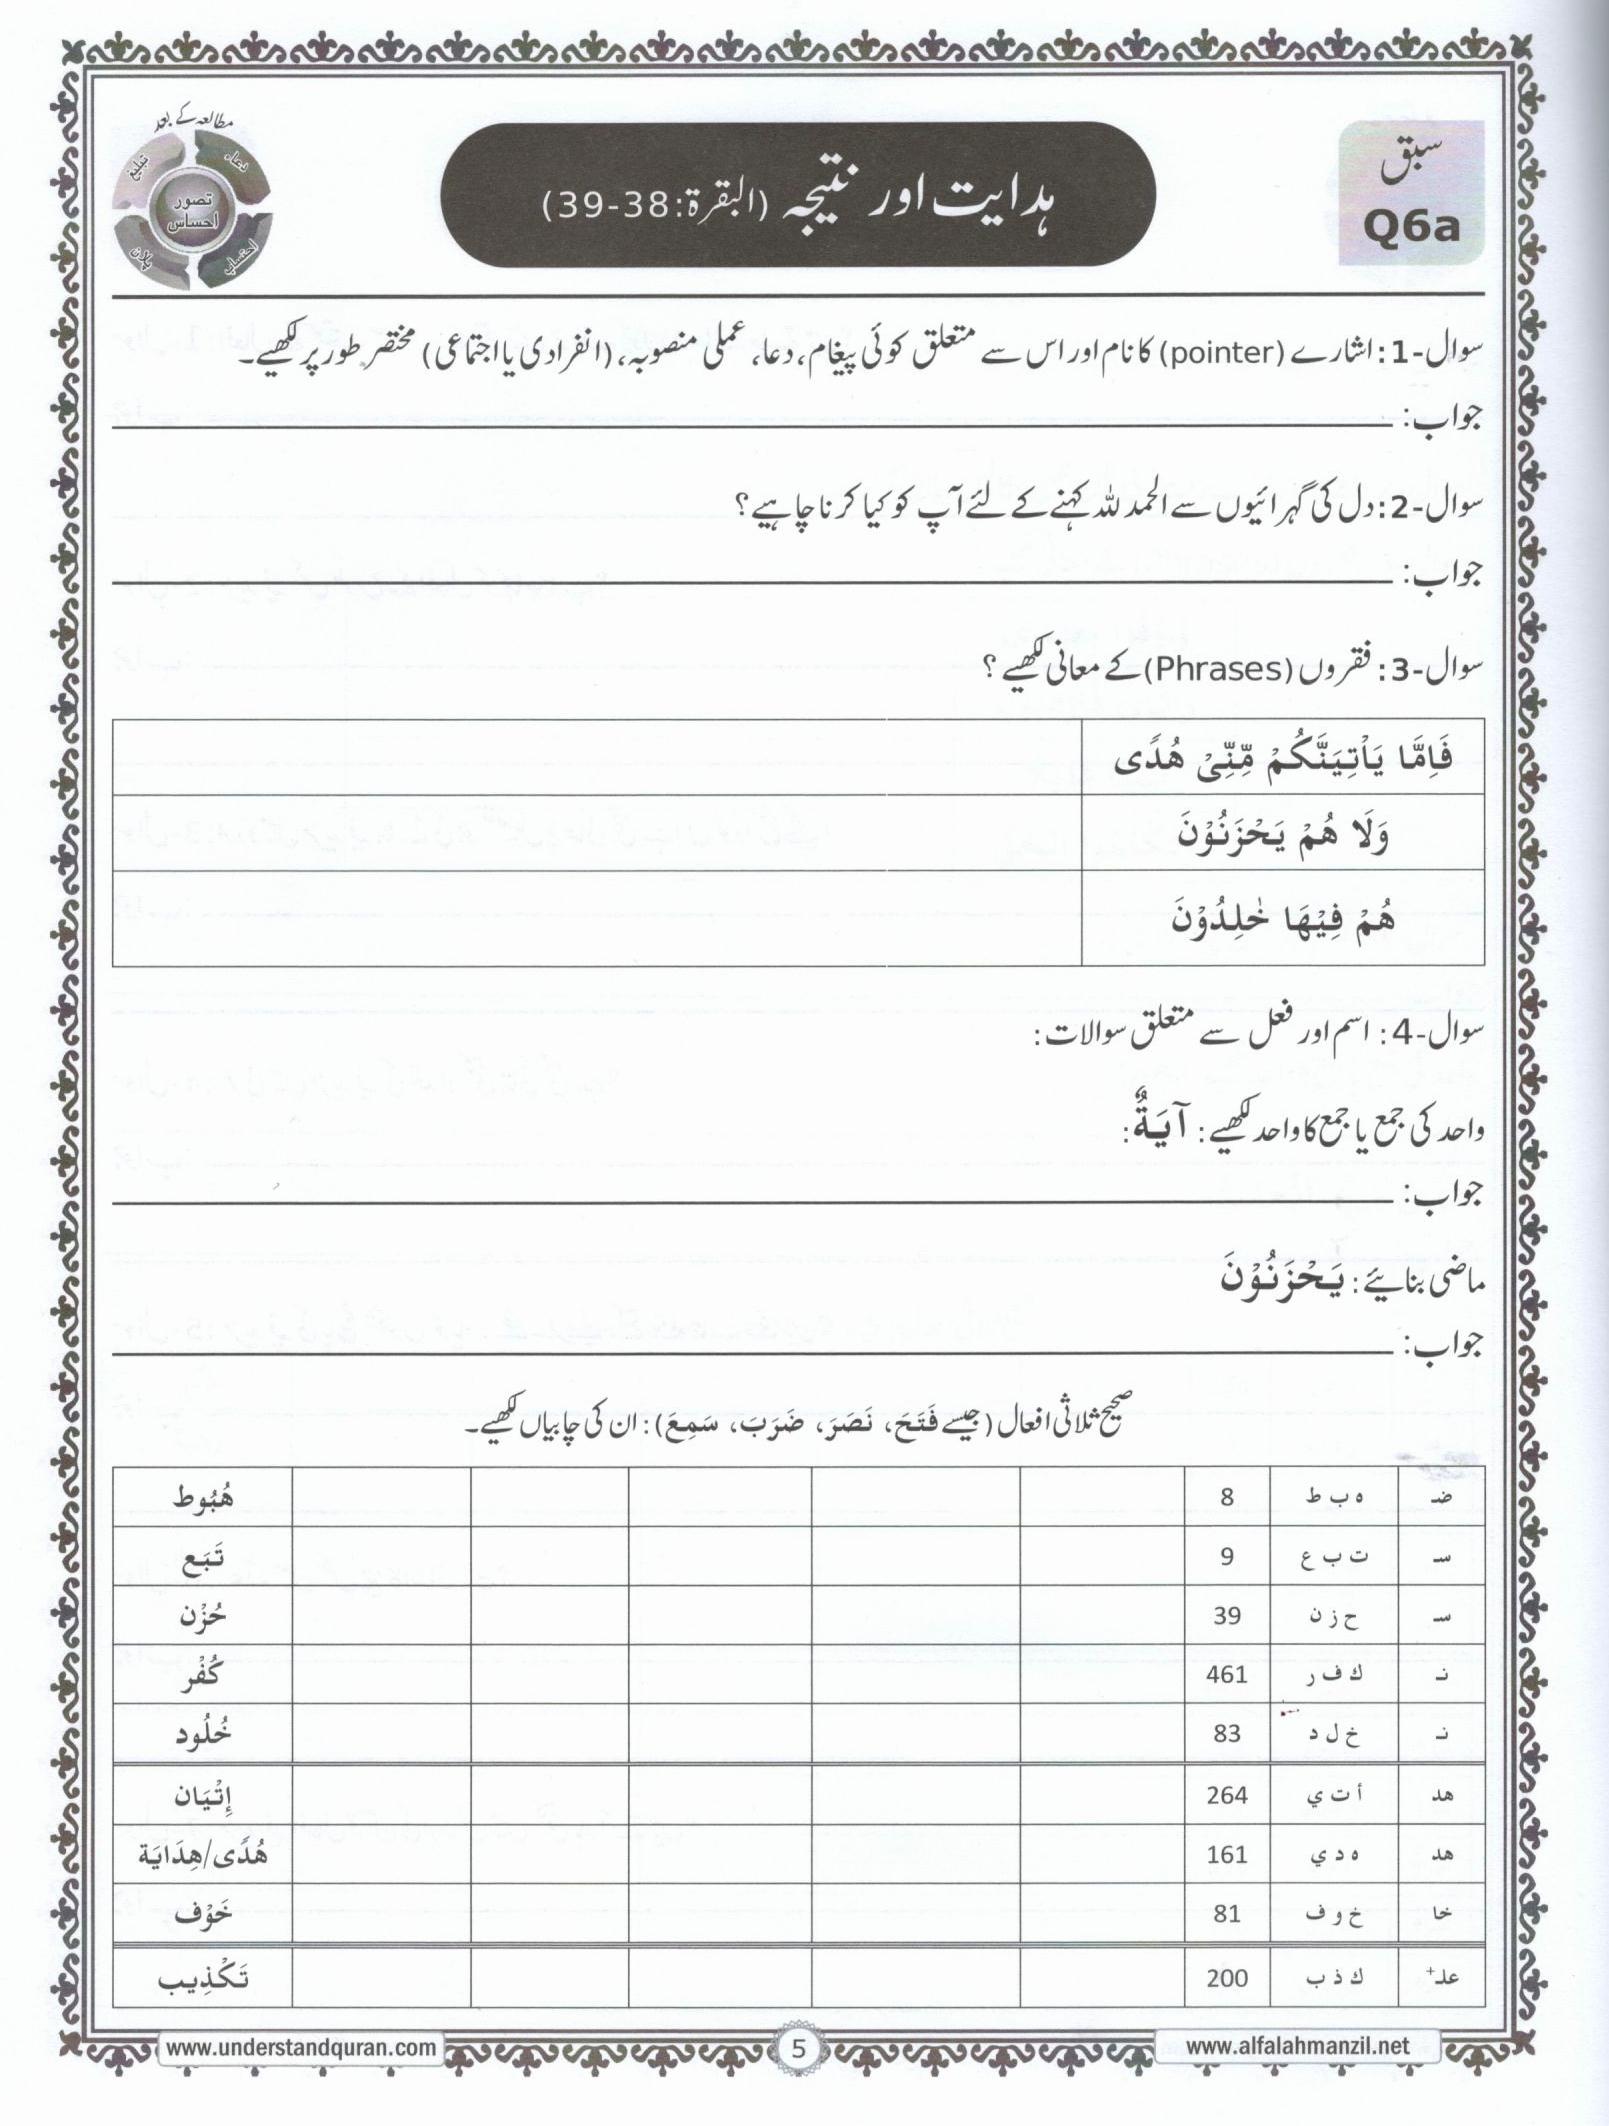 سبق
Q6a
ہدایت اور نتیجہ (البقرۃ: 38-39)
مطالعہ کے بعد
دعاء
تبلیغ
تصور
احساس
احتساب
پلان
سوال-1: اشارے (pointer) کا نام اور اس سے متعلق کوئی پیغام، دعا، عملی منصوبہ، (انفرادی یا اجتماعی) مختصر طور پر لکھیے۔
جواب:
سوال-2: دل کی گہرائیوں سے الحمد للہ کہنے کے لئے آپ کو کیا کرنا چاہیے؟
جواب:
سوال-3: فقروں (Phrases) کے معانی لکھیے؟
فَاِمَّا يَاْتِيَنَّكُمْ مِّنِّىْ هُدًى
وَلَا هُمْ يَحْزَنُوْنَ
هُمْ فِيْهَا خٰلِدُوْنَ
سوال-4: اسم اور فعل سے متعلق سوالات:
واحد کی جمع یا جمع کا واحد لکھیے: آيَةٌ:
جواب:
ماضی بنائیے: يَحْزَنُوْنَ
جواب:
صحیح ثلاثی افعال (جیسے فَتَحَ، نَصَرَ، ضَرَبَ، سَمِعَ): ان کی چابیاں لکھیے۔
ضـ ه ب ط 8 هُبُوط
سـ ت ب ع 9 تَبَع
سـ ح ز ن 39 حُزْن
نـ ك ف ر 461 كُفْر
نـ خ ل د 83 خُلُود
هد أ ت ي 264 إِتْيَان
هد ه د ي 161 هُدًى/هِدَايَة
خا خ و ف 81 خَوْف
علـ+ ك ذ ب 200 تَكْذِيب
www.understandquran.com
5
www.alfalahmanzil.net